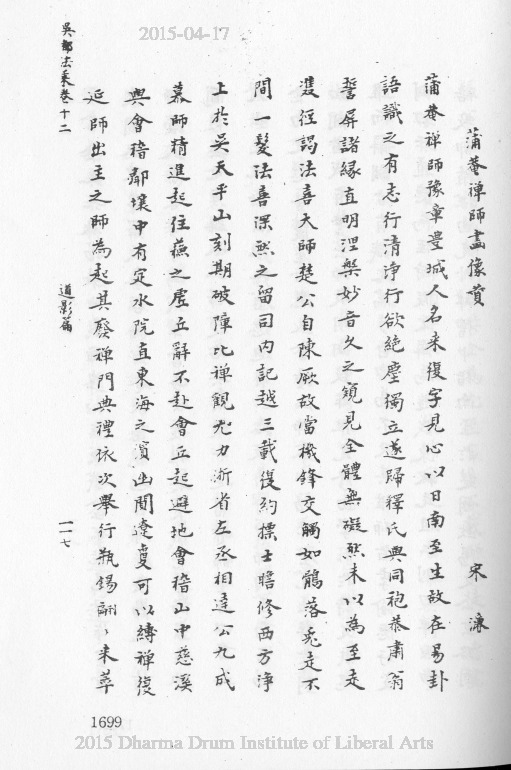 2015-04-17
吳都法乘卷十二
蒲菴禪師畵像賛
宋濂
蒲菴禪師豫章豊城人名来復字見心以日南至生故在易卦
語識之有志行清淨行欲絶塵獨立遂歸釋氏與同袍恭肅翁
誓屏諸縁直明涅槃妙音久之窺見全體無礙然未以為至走
雙徑謁法喜大師楚公自陳厥故當機鋒交觸如鶻落兎走不
間一髮法喜深然之留司内記越三載復約標士瞻修西方淨
土於吳天平山刻期破障比禪觀尤力浙省左丞相達公九成
慕師精進起住蘓之虎丘辭不赴會兵起避地會稽山中慈溪
與會稽鄰壤中有定水院直東海之濵幽閒遼敻可以縛禪復
延師出主之師為起其廢禪門典禮依次舉行瓶錫翩〻来萃
道影篇
一一七
1699
2015 Dharma Drum Institute of Liberal Arts